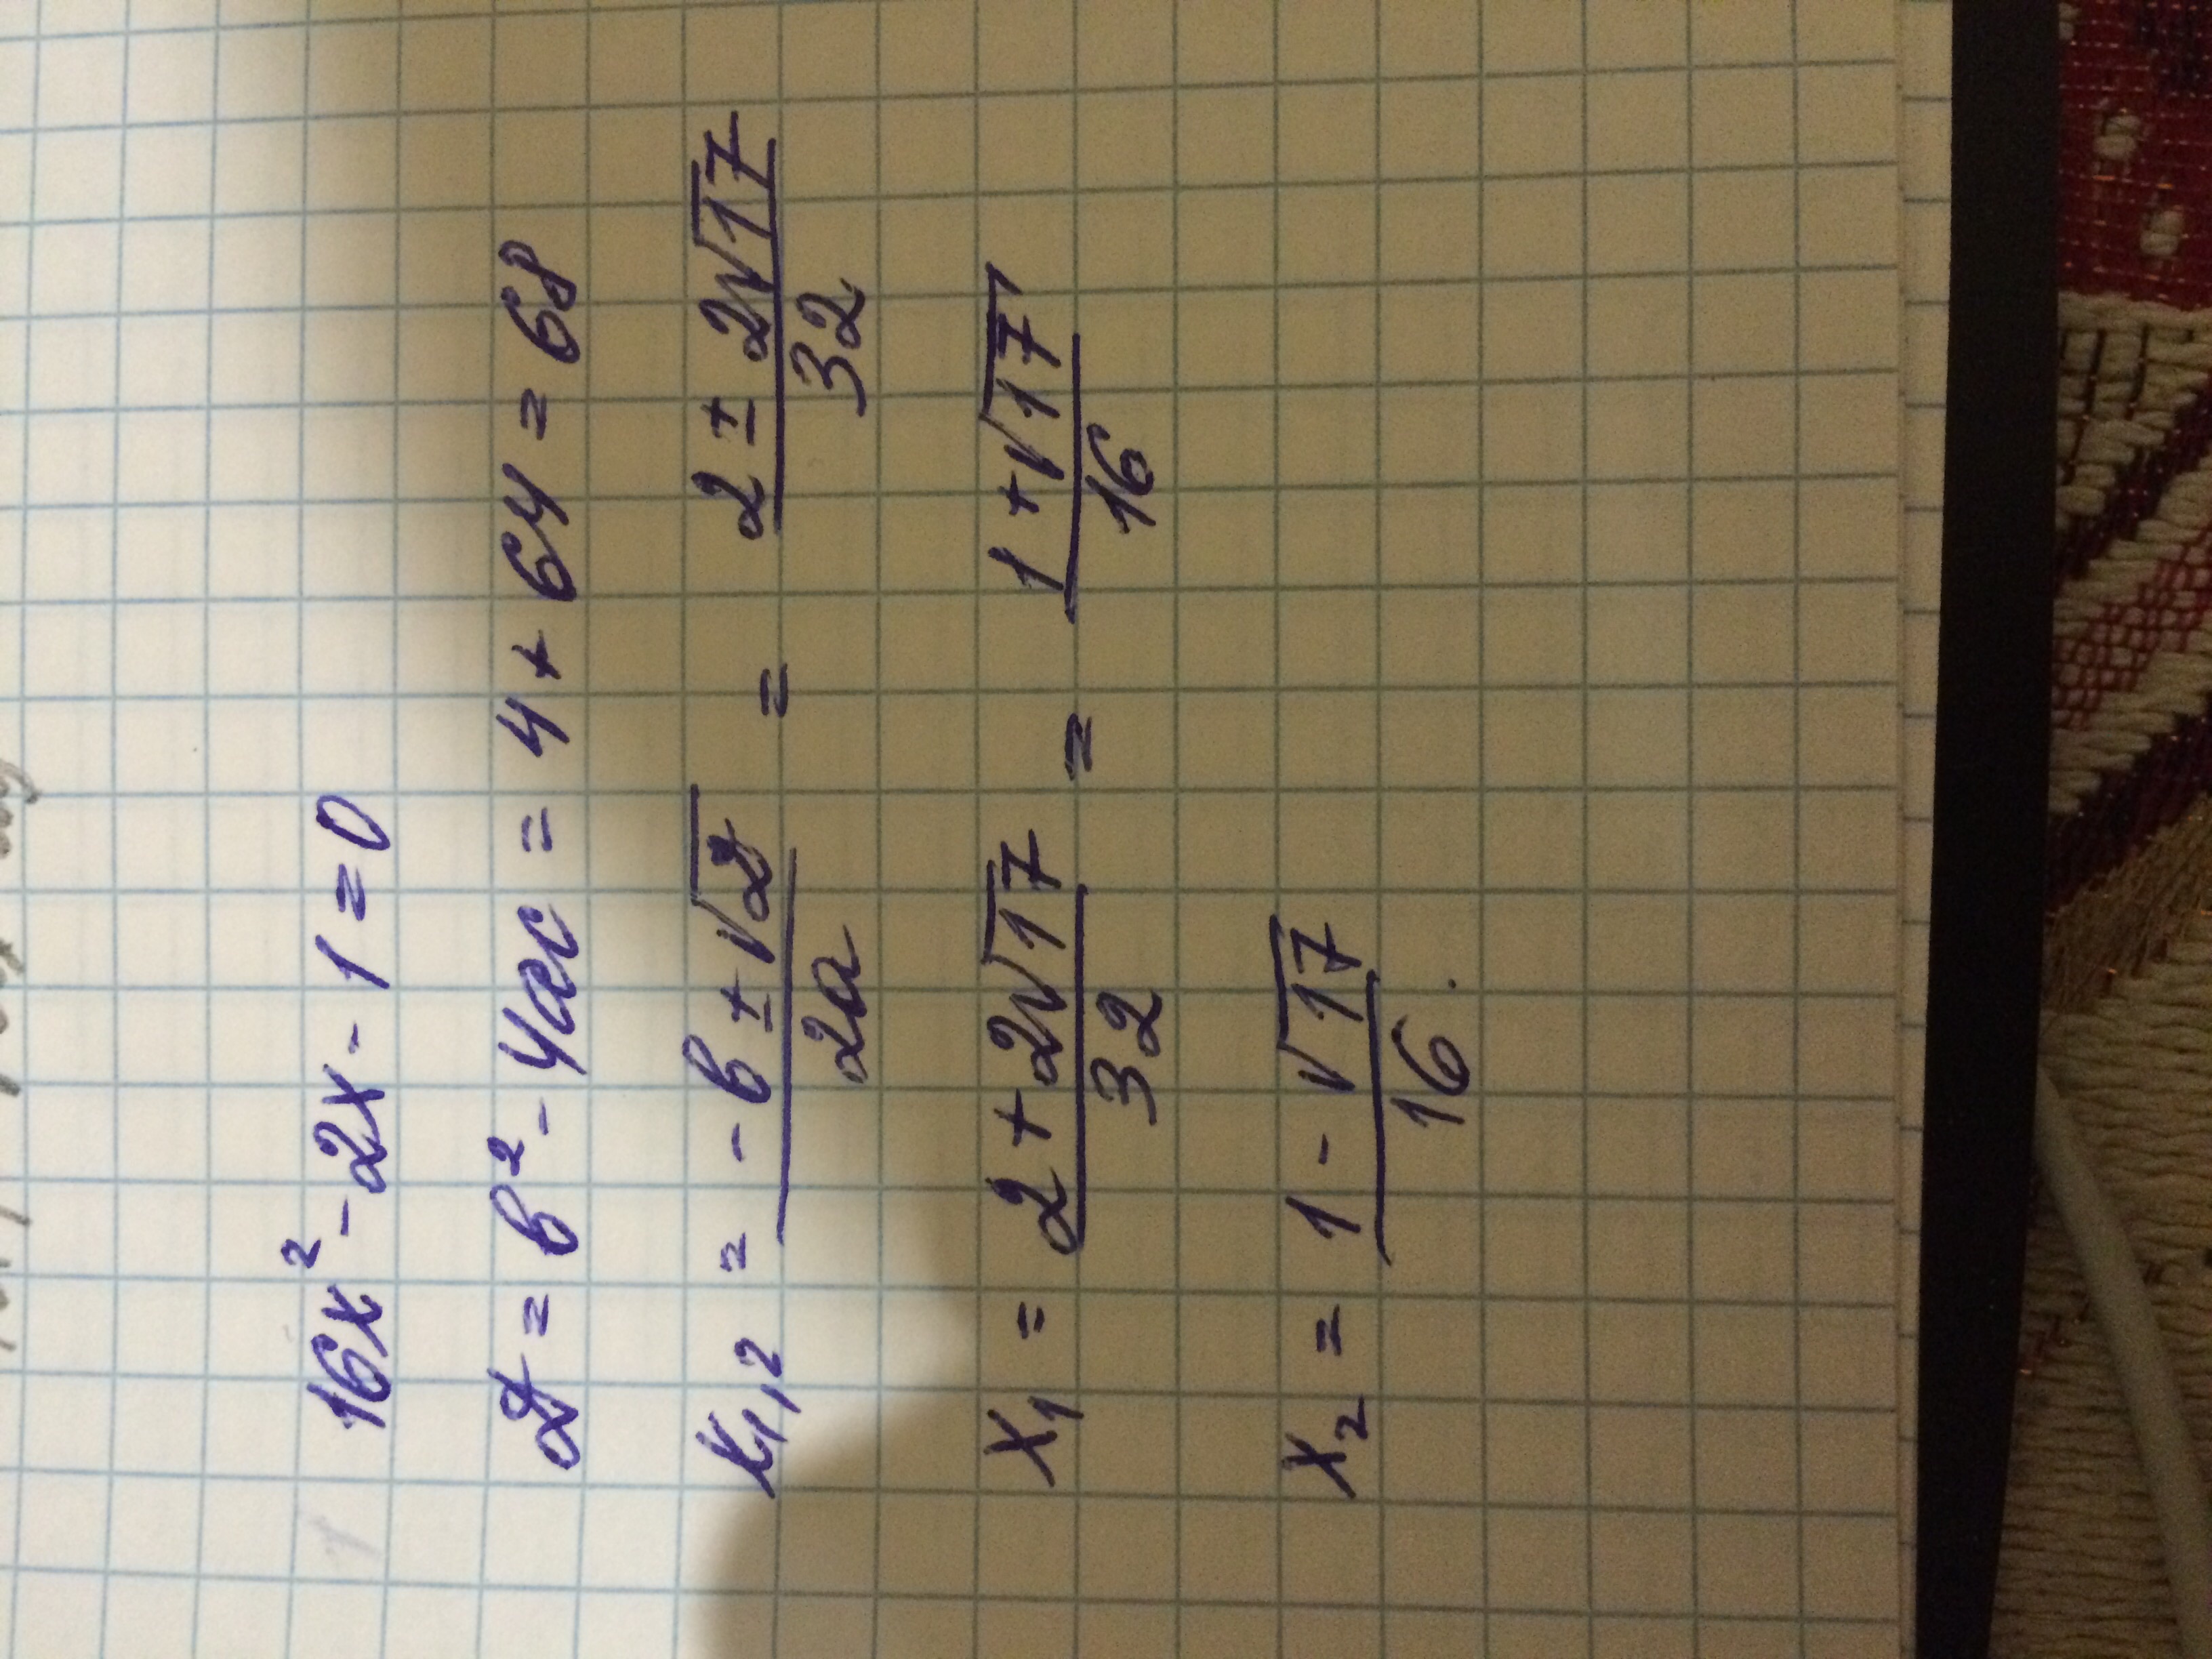 16x² - 2x - 1 = 0
D = b² - 4ac = 4 + 64 = 68
x₁,₂ = (-b ± √D)/2a = (2 ± 2√17)/32
x₁ = (2 + 2√17)/32 = (1 + √17)/16
x₂ = (1 - √17)/16.